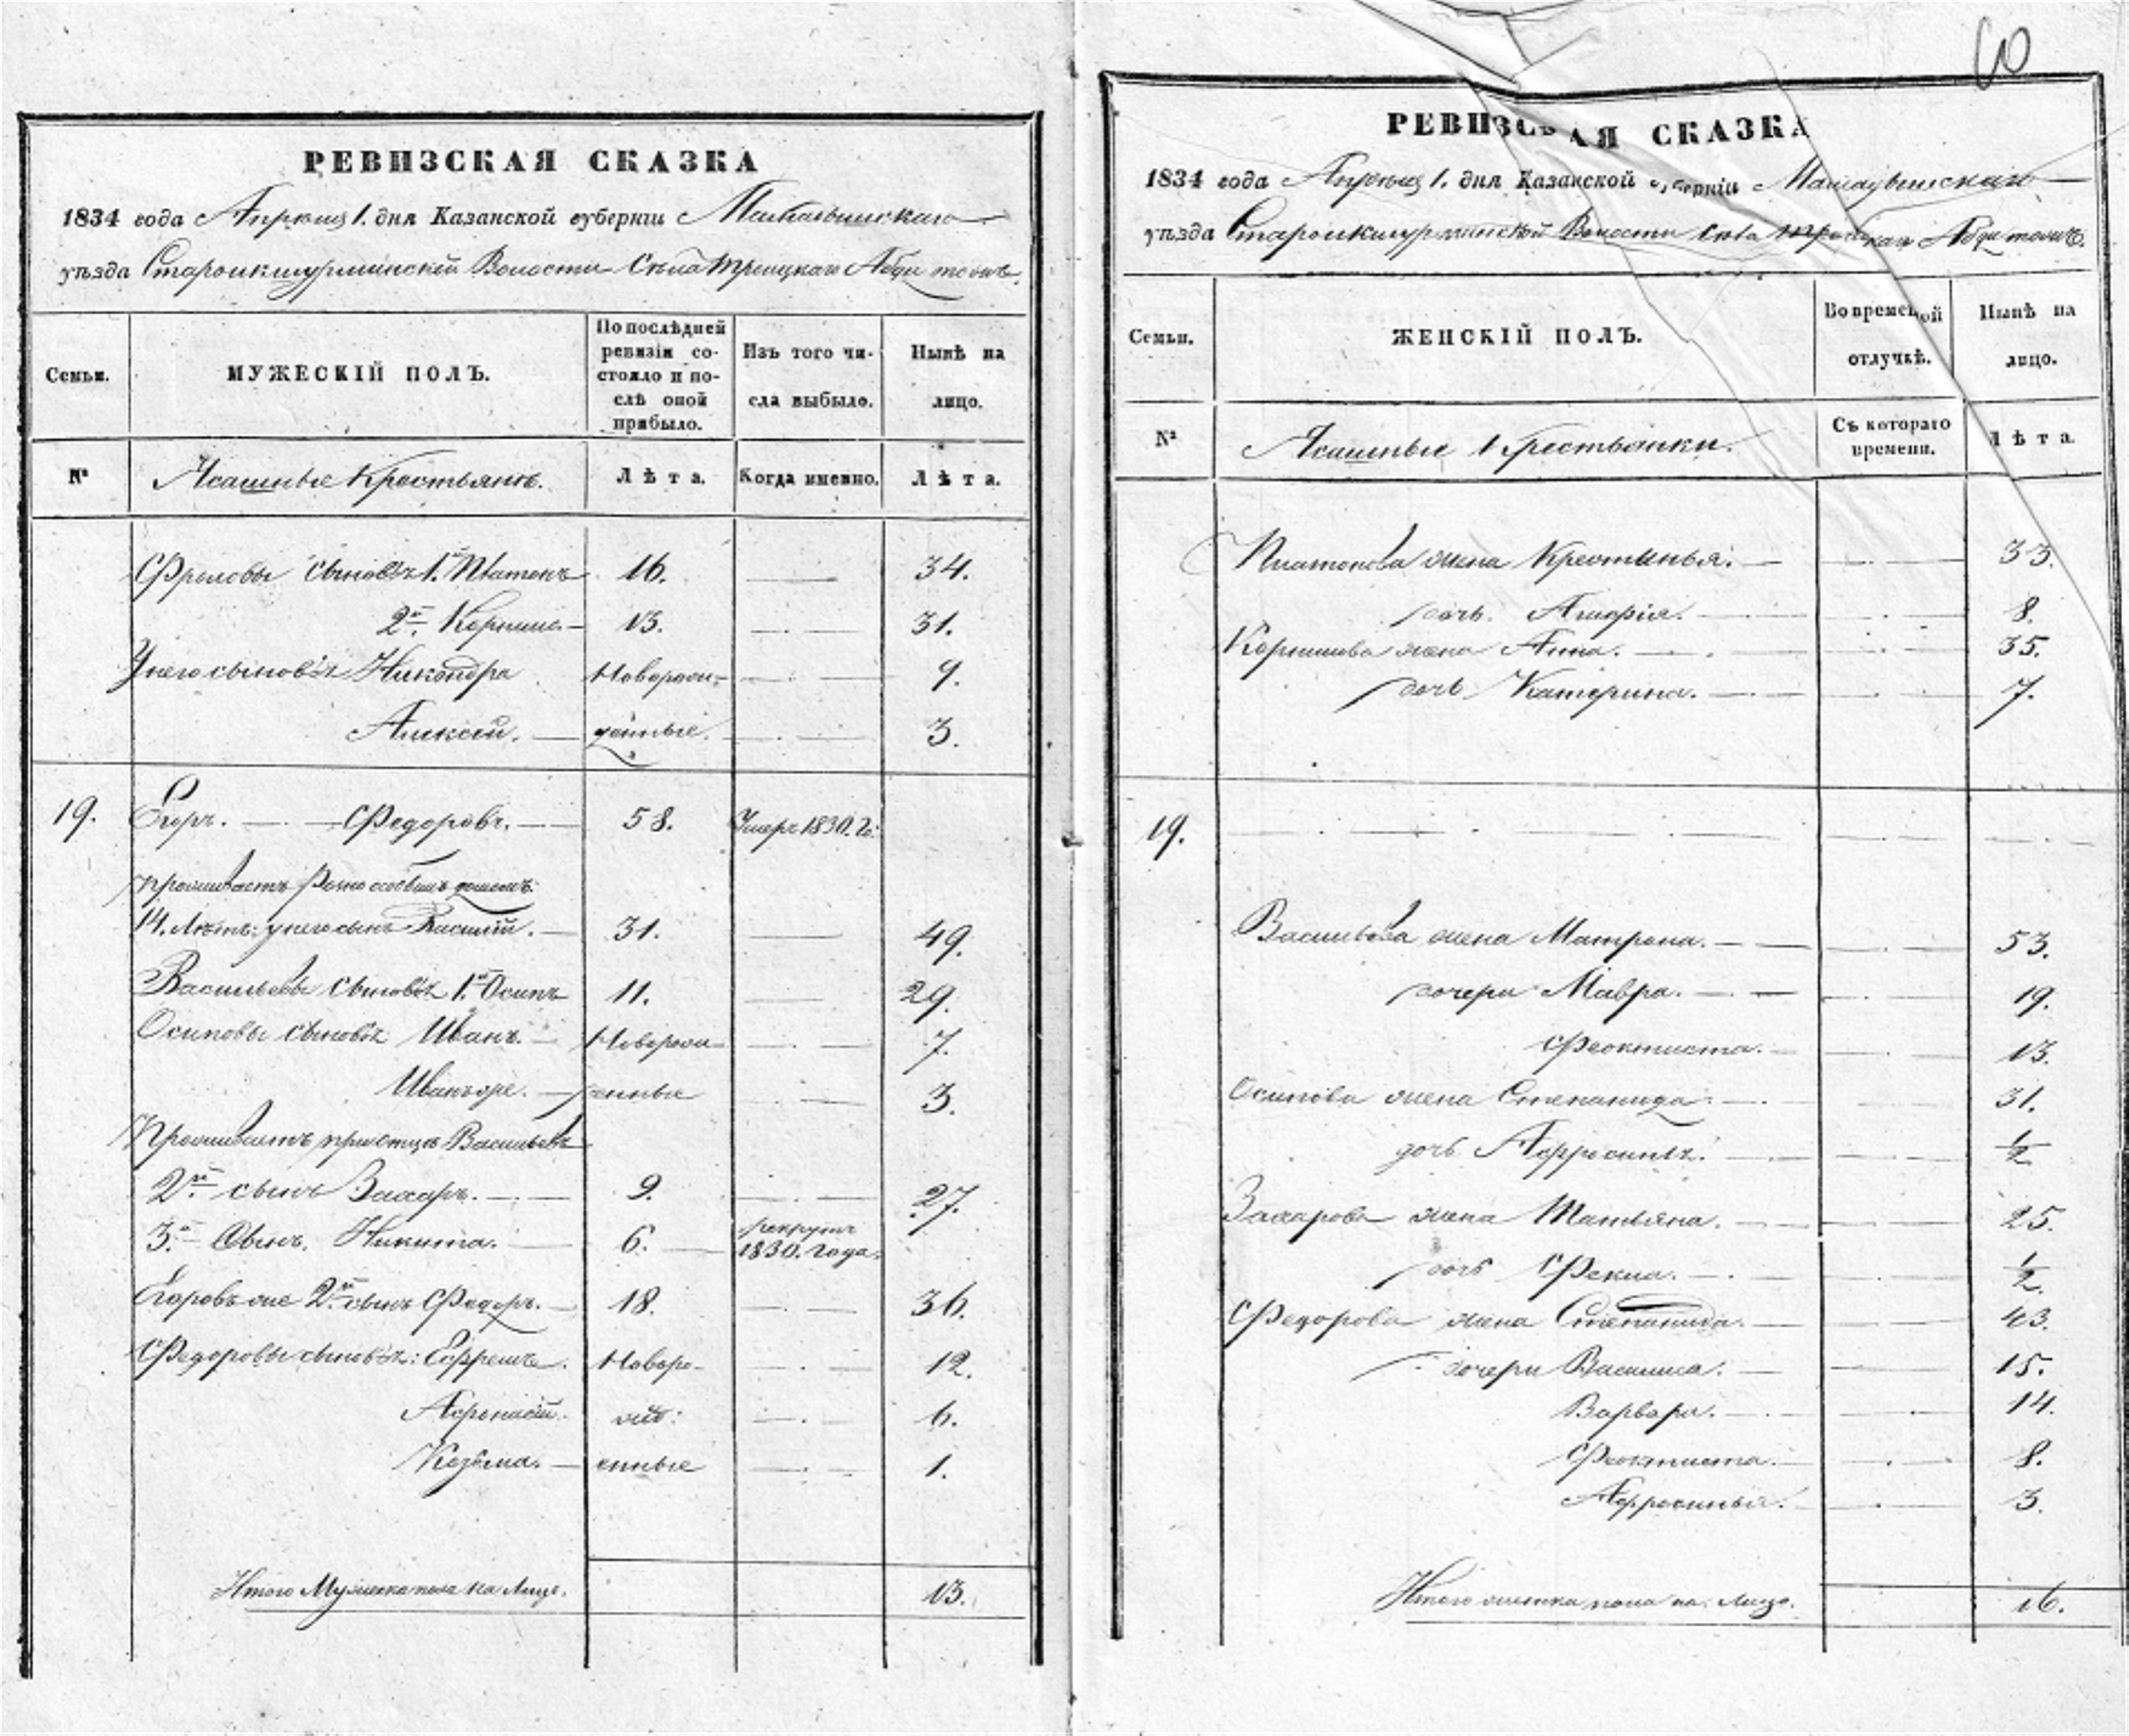 РЕВИЗСКАЯ СКАЗКА
1834 года Апреля 1. дня Казанской губерніи Мамадышскаго
уѣзда Староикшурминской Волости Села Троицкаго Абди тожъ.
Семьи.
МУЖЕСКІЙ ПОЛЪ.
По послѣдней ревизіи со-
стояло и по-
слѣ оной
прибыло.
Изъ того чи-
сла выбыло.
Нынѣ на
лицо.
№
Ясашные Крестьяне.
Лѣта.
Когда именно.
Лѣта.
Фроловы сыновья 1й Платонъ 16. 34.
2й Корнило 13. 31.
У него сыновья Никандра Новорож- 9.
Алексей. денные. 3.
19. Егоръ. Федоровъ. 58. Умеръ 1830. го.
проживаетъ особымъ домомъ.
14. Летъ: у него сынъ Василий. 31. 49.
Васильевы сыновья 1й Осипъ 11. 29.
Осиповы сыновья Иванъ. Новорож- 7.
Иванъ же. денные 3.
Проживаетъ при отце Василье
2й сынъ Захаръ. 9. 27.
3й Сынъ. Никита. 6. рекрутъ
1830. года.
Егоровъ же 2й сынъ Федоръ. 18. 36.
Федоровы сыновья: Ефремъ. Новоро- 12.
Афонасий. жд: 6.
Козьма. енные 1.
Итого Мужеска пола на Лицо. 13.
60
РЕВИЗСКАЯ СКАЗКА
1834 года Апреля 1. дня Казанской губерніи Мамадышскаго
уѣзда Староикшурминской Волости Села Троицкаго Абди тожъ.
Семьи.
ЖЕНСКІЙ ПОЛЪ.
Во временной
отлучкѣ.
Нынѣ на
лицо.
№
Ясашные Крестьянки.
Съ котораго
времени.
Лѣта
Платонова жена Крестинья. 33.
дочь. 8.
Корнилова жена Анна. 35.
дочь Катерина. 7.
19.
Васильева жена Матрона. 53.
дочери Мавра. 19.
Феоктиста. 13.
Осипова жена Степанида. 31.
дочь Афросинья. ½
Захарова жена Татьяна. 25.
дочь Фекла. ½
Федорова жена Степанида. 43.
дочери Василиса. 15.
Варвара. 14.
Феоктиста. 8.
Афросинья. 3.
Итого женска пола на Лицо. 16.